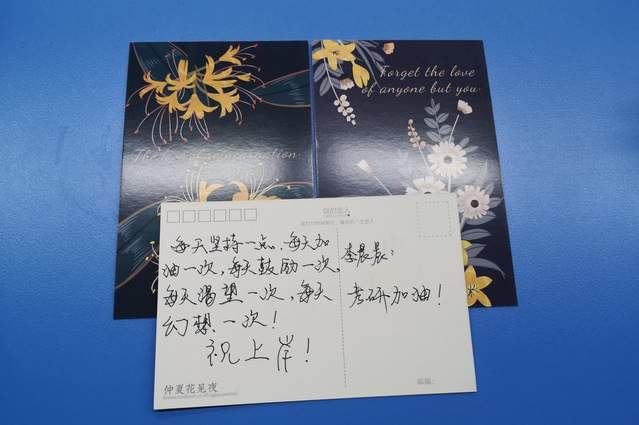 Forget the love
of anyone but you
每天坚持一点，每天加
油一次，每天鼓励一次，
每天渴望一次，每天
幻想一次！
祝上岸！
李晨晨：
考研加油！
仲夏花见夜
邮编：